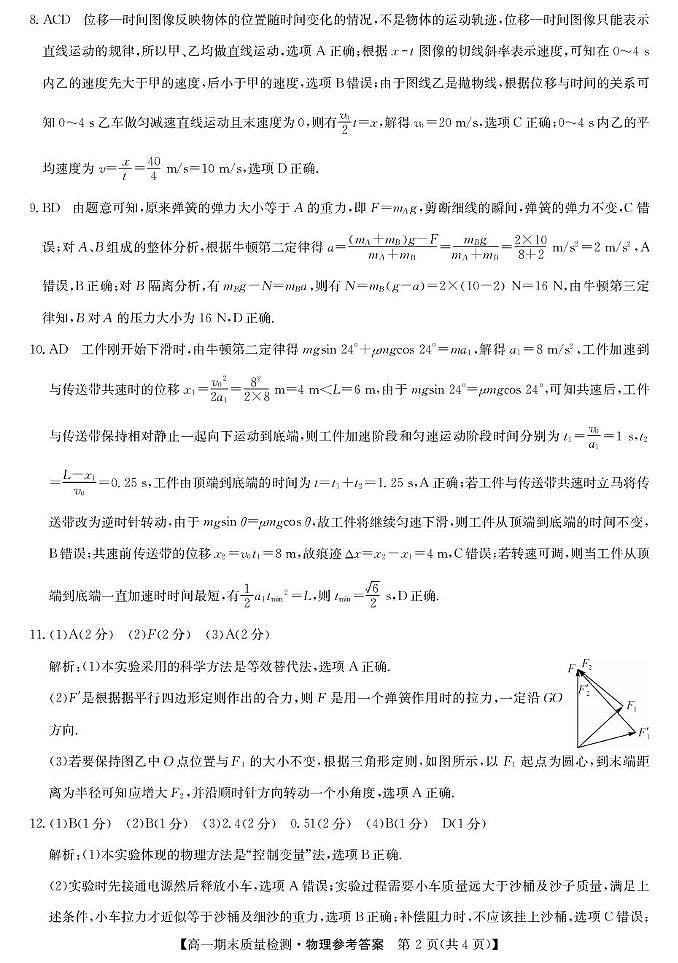 8. ACD 位移—时间图像反映物体的位置随时间变化的情况,不是物体的运动轨迹,位移—时间图像只能表示
直线运动的规律,所以甲、乙均做直线运动,选项 A 正确;根据 x-t 图像的切线斜率表示速度,可知在 0～4 s
内乙的速度先大于甲的速度,后小于甲的速度,选项 B错误;由于图线乙是抛物线,根据位移与时间的关系可
知 0～4 s 乙车做匀减速直线运动且末速度为 0,则有 v₀/2 t=x,解得 v₀=20 m/s,选项 C 正确;0～4 s 内乙的平
均速度为 v=x/t=40/4 m/s=10 m/s,选项 D 正确.
9. BD 由题意可知,原来弹簧的弹力大小等于 A 的重力,即 F=m_A g,剪断细线的瞬间,弹簧的弹力不变,C 错
误;对 A、B 组成的整体分析,根据牛顿第二定律得 a=(m_A+m_B)g−F/m_A+m_B=m_B g/m_A+m_B=2×10/8+2 m/s²=2 m/s²,A
错误,B 正确;对 B 隔离分析,有 m_B g−N=m_B a,则有 N=m_B(g−a)=2×(10−2) N=16 N,由牛顿第三定
律知,B 对 A 的压力大小为 16 N,D 正确.
10. AD 工件刚开始下滑时,由牛顿第二定律得 mgsin 24°+μmgcos 24°=ma₁,解得 a₁=8 m/s²,工件加速到
与传送带共速时的位移 x₁=v₀²/2a₁=8²/2×8 m=4 m<L=6 m,由于 mgsin 24°=μmgcos 24°,可知共速后,工件
与传送带保持相对静止一起向下运动到底端,则工件加速阶段和匀速运动阶段时间分别为 t₁=v₀/a₁=1 s,t₂
=L−x₁/v₀=0.25 s,工件由顶端到底端的时间为 t=t₁+t₂=1.25 s,A 正确;若工件与传送带共速时立马将传
送带改为逆时针转动,由于 mgsin θ=μmgcos θ,故工件将继续匀速下滑,则工件从顶端到底端的时间不变,
B 错误;共速前传送带的位移 x₂=v₀t₁=8 m,故痕迹 Δx=x₂−x₁=4 m,C 错误;若转速可调,则当工件从顶
端到底端一直加速时时间最短,有 1/2 a₁t_min²=L,则 t_min=√6/2 s,D 正确.
11. (1)A(2 分) (2)F(2 分) (3)A(2 分)
解析:(1)本实验采用的科学方法是等效替代法,选项 A 正确.
(2)F′是根据据平行四边形定则作出的合力,则 F 是用一个弹簧作用时的拉力,一定沿 GO
方向.
(3)若要保持图乙中 O 点位置与 F₁ 的大小不变,根据三角形定则,如图所示,以 F₁ 起点为圆心,到末端距
离为半径可知应增大 F₂,并沿顺时针方向转动一个小角度,选项 A 正确.
F F₂
F₂′
F₁
F₁′
12. (1)B(1 分) (2)B(1 分) (3)2.4(2 分) 0.51(2 分) (4)B(1 分) D(1 分)
解析:(1)本实验体现的物理方法是“控制变量”法,选项 B 正确.
(2)实验时先接通电源然后释放小车,选项 A 错误;实验过程需要小车质量远大于沙桶及沙子质量,满足上
述条件,小车拉力才近似等于沙桶及细沙的重力,选项 B 正确;补偿阻力时,不应该挂上沙桶,选项 C 错误;
【高一期末质量检测·物理参考答案 第 2 页(共 4 页)】